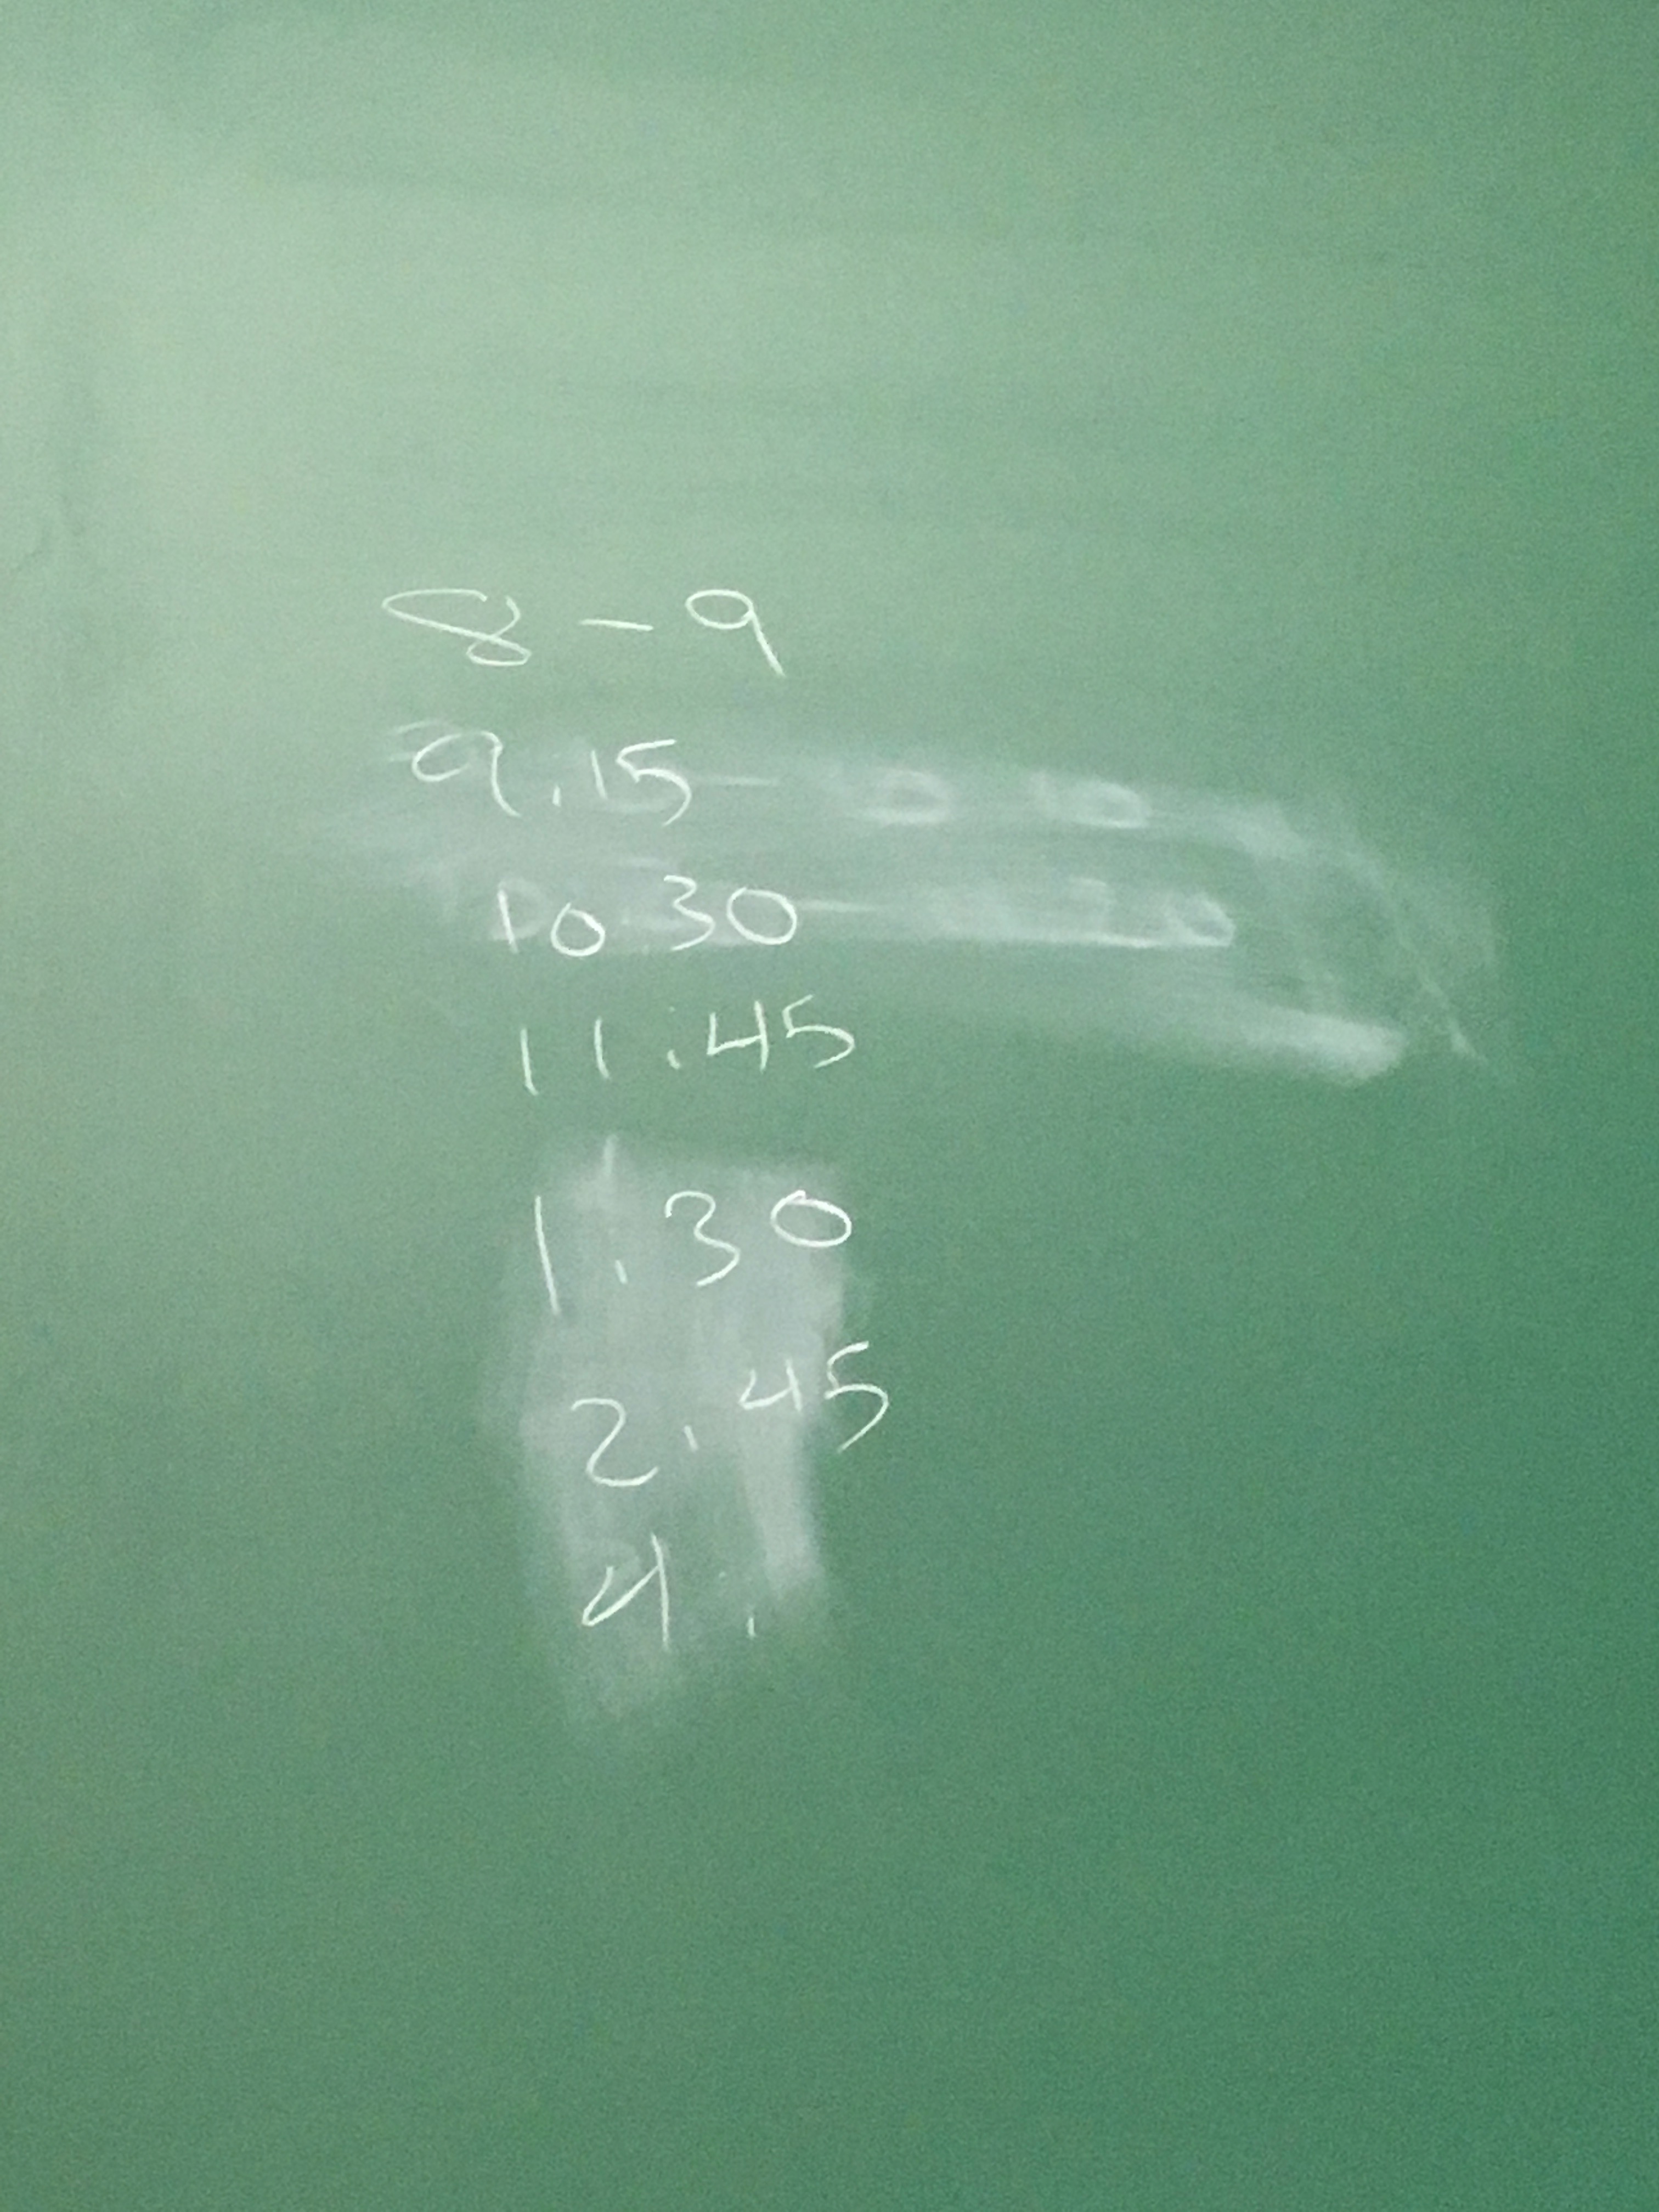 8 - 9
9.15 -
10 30 -
11:45
1.30
2.45
4.